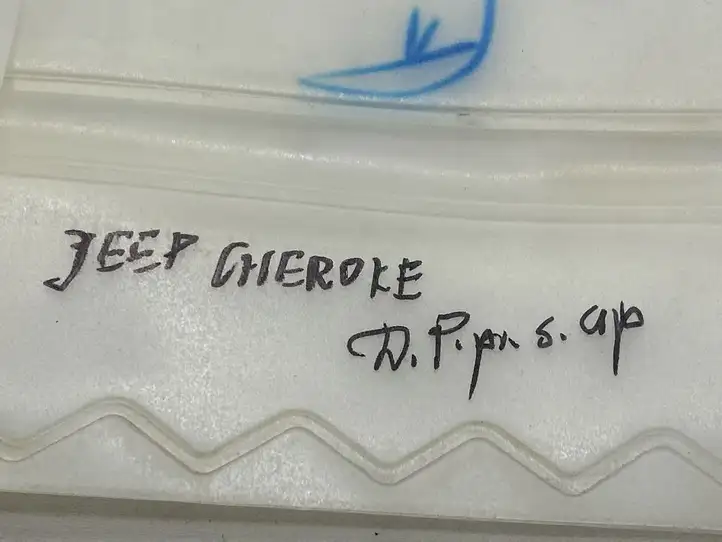 JEEP CHEROKE
D.P.pr. s. cup